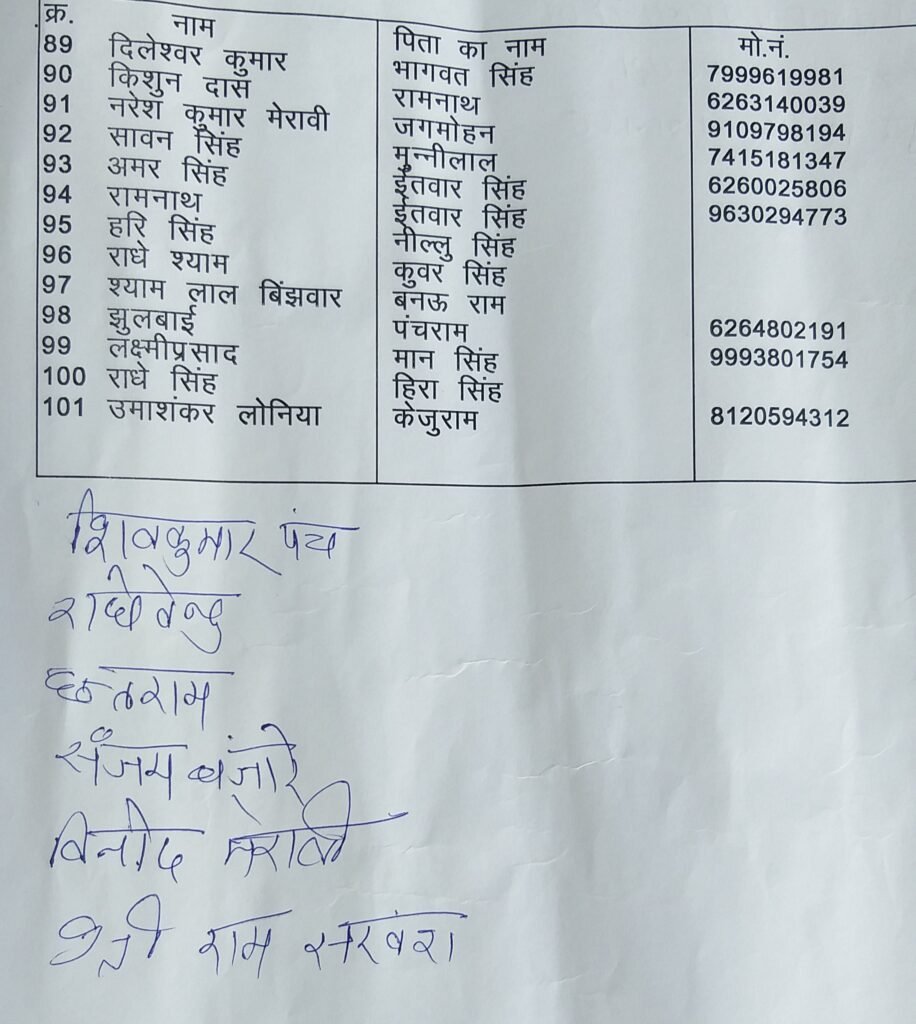 क्र. नाम पिता का नाम मो.नं.
89 दिलेश्वर कुमार भागवत सिंह 7999619981
90 किशुन दास रामनाथ 6263140039
91 नरेश कुमार मेरावी जगमोहन 9109798194
92 सावन सिंह मुन्नीलाल 7415181347
93 अमर सिंह ईतवार सिंह 6260025806
94 रामनाथ ईतवार सिंह 9630294773
95 हरि सिंह नील्लु सिंह
96 राधे श्याम कुवर सिंह
97 श्याम लाल बिंझवार बनऊ राम
98 झुलबाई पंचराम 6264802191
99 लक्ष्मीप्रसाद मान सिंह 9993801754
100 राधे सिंह हिरा सिंह
101 उमाशंकर लोनिया केजुराम 8120594312
शिवकुमार पंच
छतराम
संजय बंजारे
विनोद मेरावी
राम